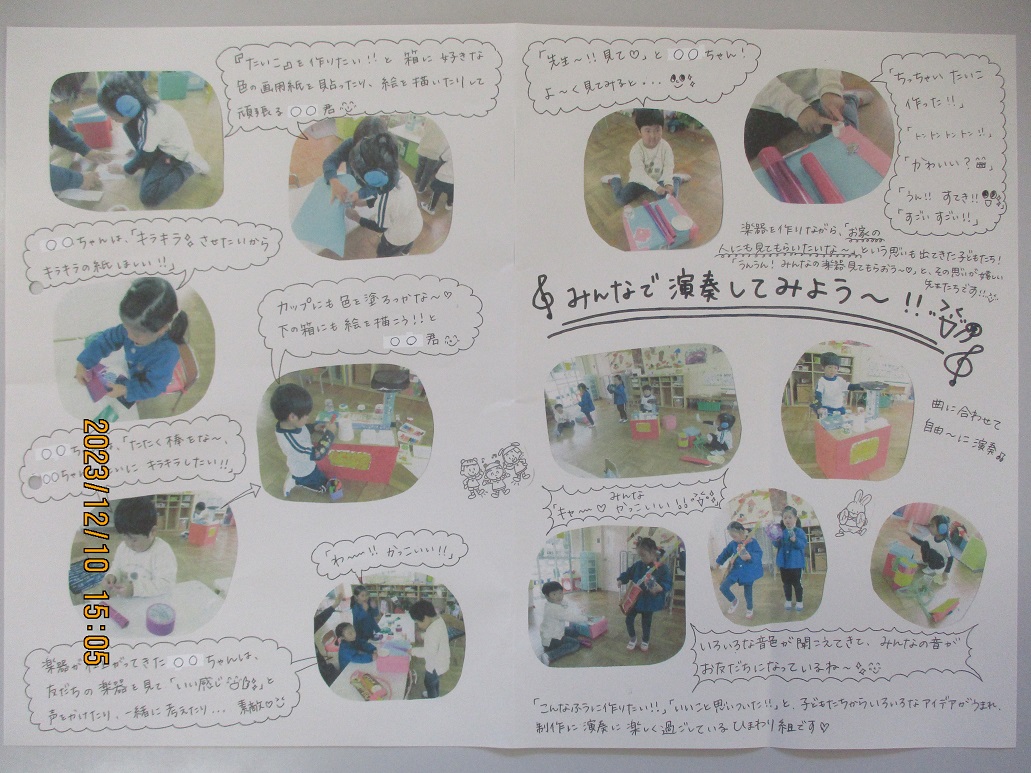 『たいこ』を作りたい!!と 箱に好きな
色の画用紙を貼ったり、絵を描いたりして
頑張る ○○君
○○ちゃんは、「キラキラ させたいから
キラキラの紙ほしい!!」
カップにも色を塗ろっかな〜♡
下の箱にも絵を描こう!!と
○○君
○○ 「たたく棒をな〜、
○○ちゃん いに キラキラしたい!!」
「わ〜!! かっこいい!!」
楽器が がってきた ○○ちゃんは、
友だちの楽器を見て「いい感じ 」と
声をかけたり、一緒に考えたり... 素敵♡
「先生〜!! 見て♡」と ○○ちゃん!
よ〜く見てみると・・・
「ちっちゃい たいこ
作った!!」
「トントントントン!!」
「かわいい?」
「うん!! すてき!!
「すごい すごい!!」
楽器を作りながら、「お家の
人にも見てもらいたいな〜」という思いも出てきた子どもたち!
「うんうん! みんなの楽器見てもらおう〜♡」と、その思いが嬉しい
先生たちです!!
みんなで演奏してみよう〜!!
曲に合わせて
自由〜に演奏♫
「キャ〜♡ みんな
かっこいい!!
いろいろな音色が聞こえてきて、みんなの音が
お友だちになっているね〜
「こんなふうに作りたい!!」「いいこと思いついた!!」と、子どもたちからいろいろなアイデアがうまれ、
制作に演奏に楽しく過ごしている ひまわり組です♡
2023/12/10 15:05